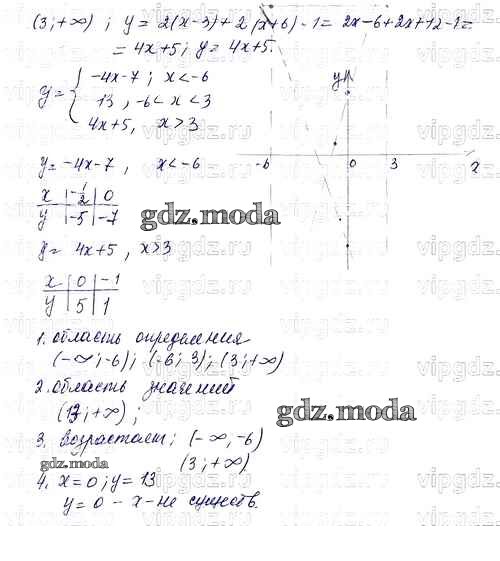 (3;+∞) ; y = 2(x-3)+2(x+6)-1= 2x-6+2x+12-1=
= 4x+5; y= 4x+5.
y= { -4x-7 ; x<-6
13 , -6<x<3
4x+5, x>3
y= -4x-7 , x<-6
x | -1/2 | 0
y | -5 | -7
y= 4x+5 , x>3
x | 0 | -1
y | 5 | 1
y
-6 0 3 x
1. область определения
(-∞;-6); (-6; 3); (3;+∞)
2. область значений
(13;+∞) ;
3. возрастает; (-∞,-6)
(3;+∞)
4. x=0; y=13
y=0 - x - не существ.
gdz.moda
gdz.moda
gdz.moda
vipgdz.ru